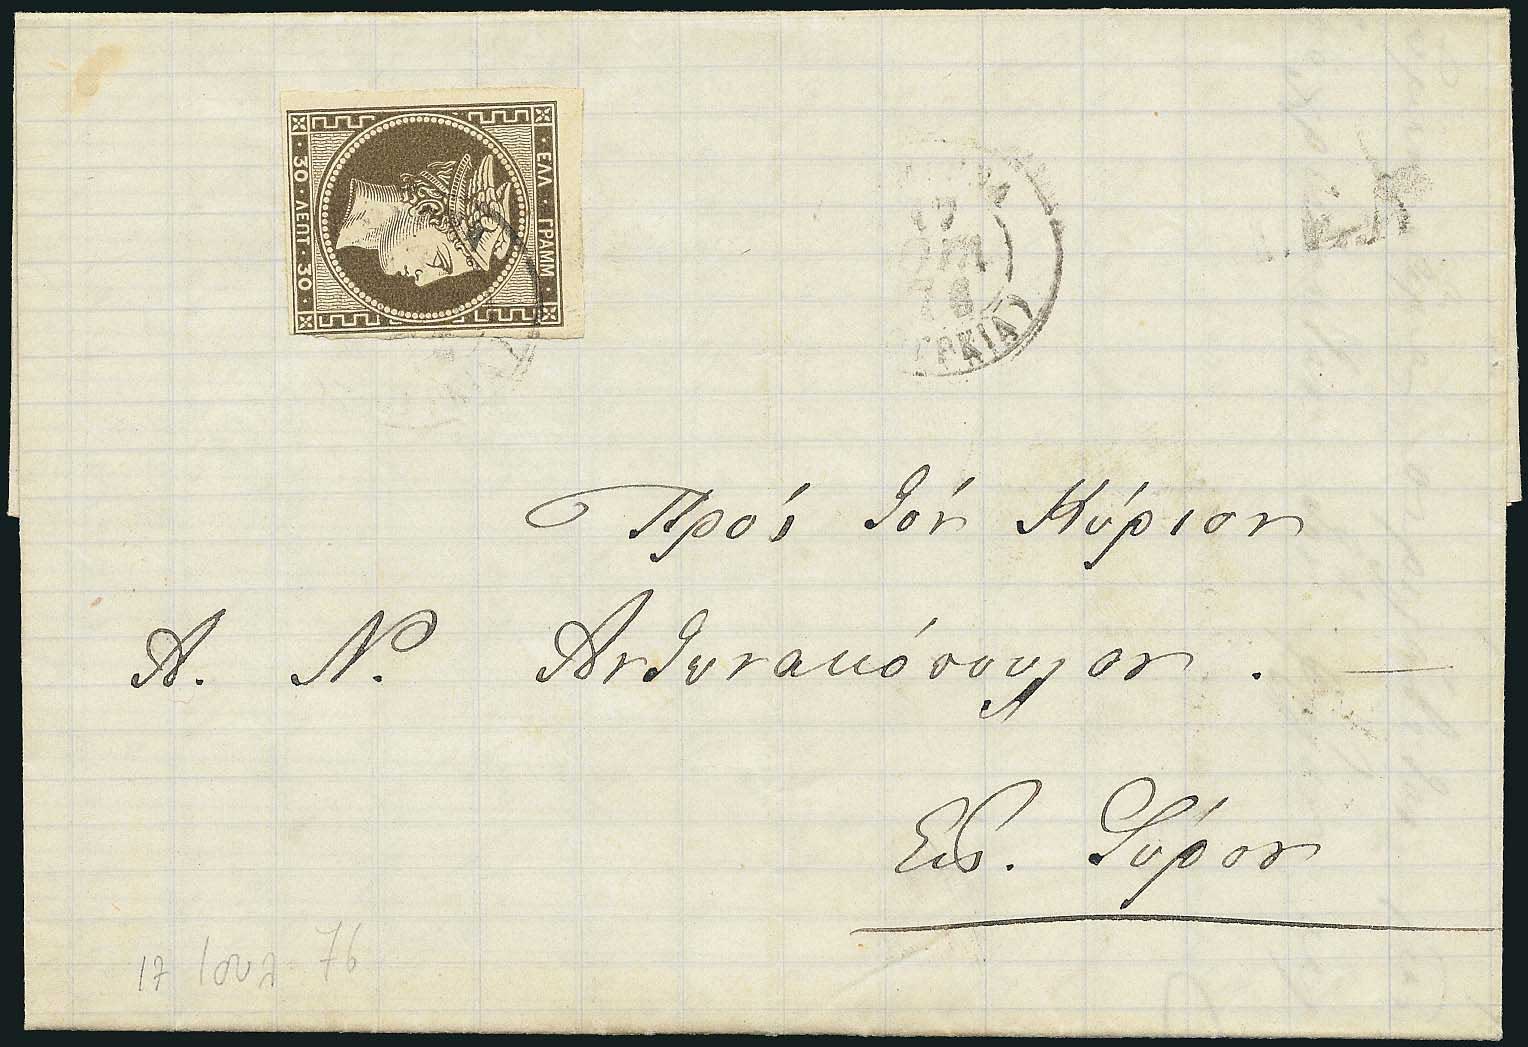 ΕΛΛ · ΓΡΑΜΜ ·
· 30 · ΛΕΠΤ · 30 ·
17
76
ΕΡΚΙΑ)
Πρός τόν Κύριον
Α. Ν. Αντωνακόπουλον. —
Εις. Σύρον
17 Ιουλ 76